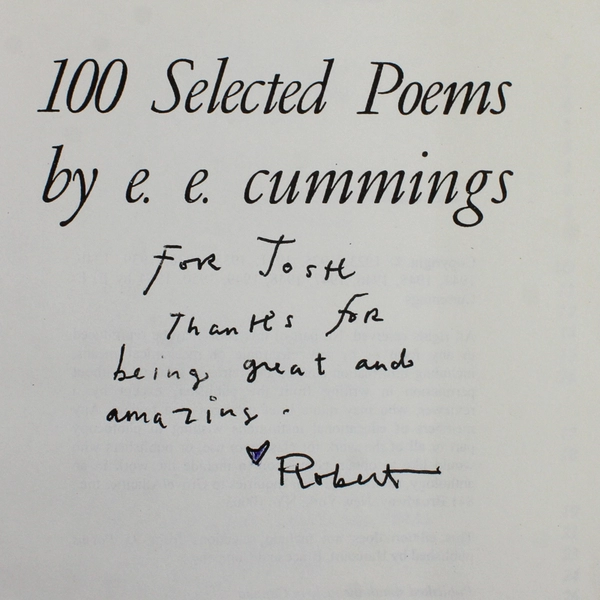 100 Selected Poems
by e. e. cummings
For Josh
Thanks for
being great and
amazing.
♥ Robert